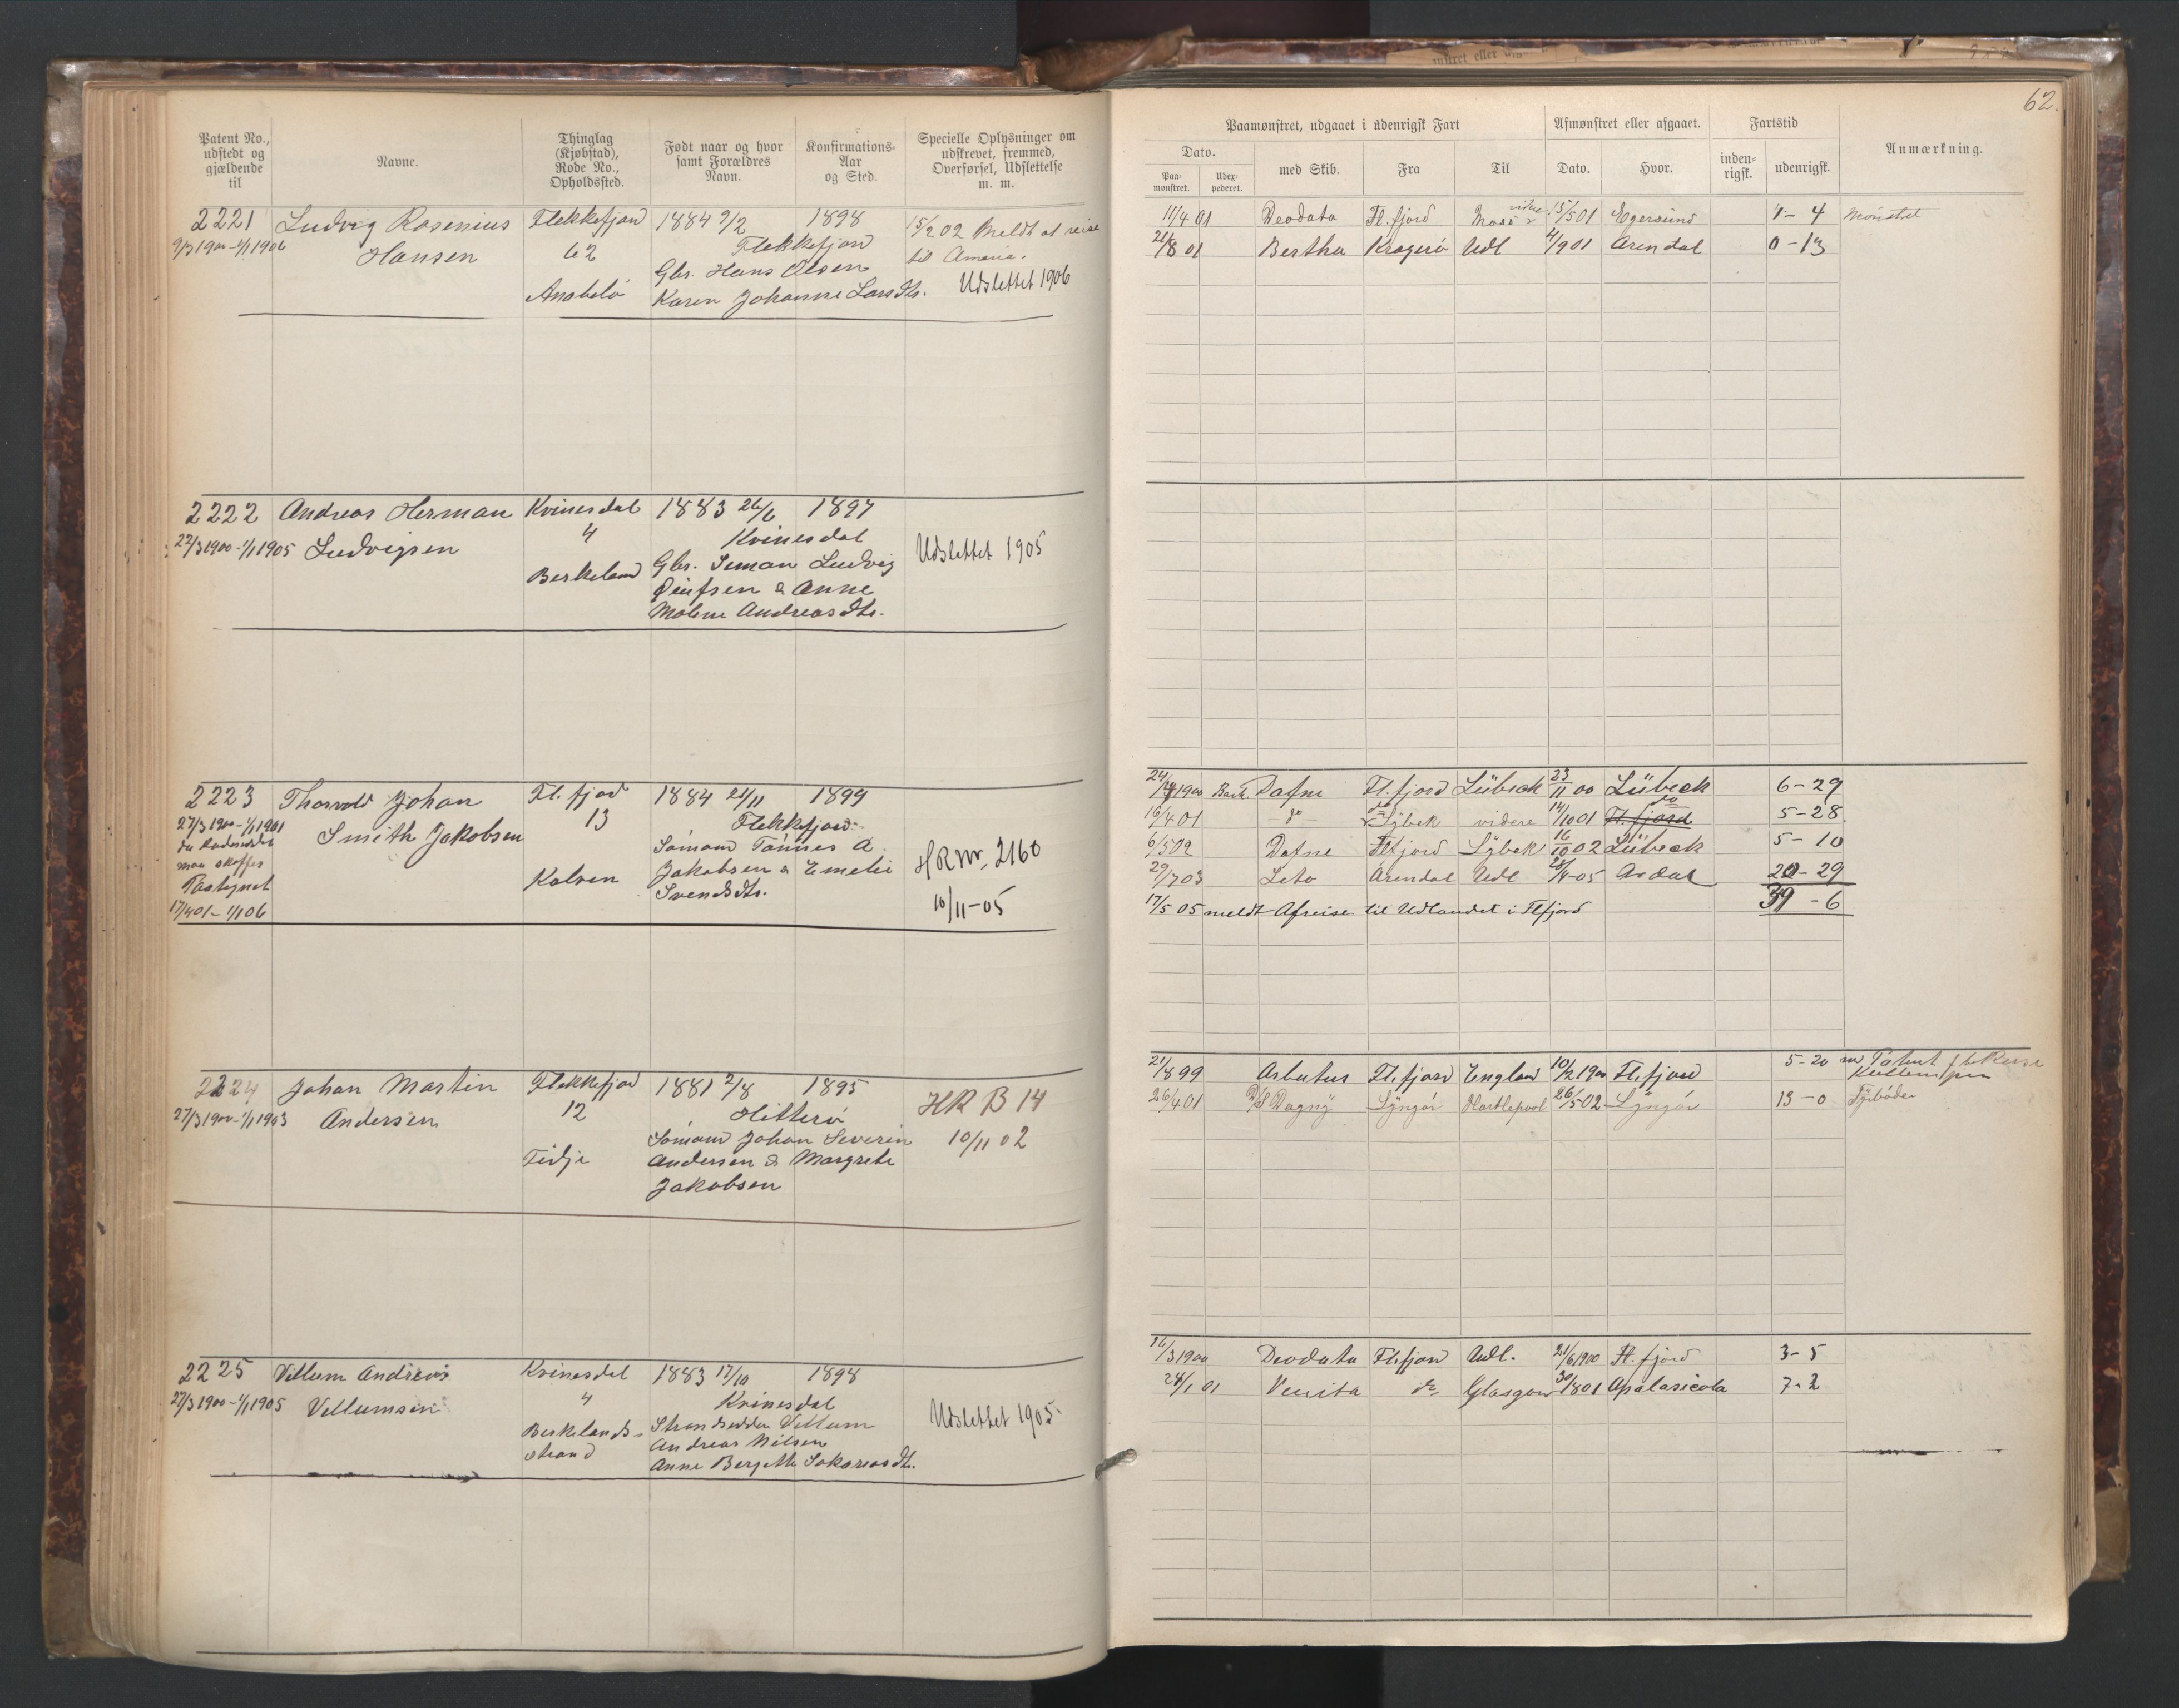 62.
Patent No., udstedt og gjældende til
Navne.
Thinglag (Kjøbstad), Rode No., Opholdssted.
Født naar og hvor samt Forældres Navn.
Konfirmations-Aar og Sted.
Specielle Oplysninger om udskrevet, fremmed, Overførsel, Udslettelse m. m.
Paamønstret, udgaaet i udenrigsk Fart
Afmønstret eller afgaaet.
Fartstid
Anmærkning.
Dato.
Paa-mønstret.
Udex-pederet.
med Skib.
Fra
Til
Dato.
Hvor.
inden-rigsk.
udenrigsk.
2221 Ludvig Rosenius Flekkefjord 1884 9/2 1898 15/2 02 Meldt at reise
9/3 1900-1/1 1906 Hansen 62 Flekkefjord til
Gbr. Hans Olsen
Anabelø Karen Johanne Larsdtr. Udslettet 1906
11/4 01 Deodata Fl.fjord Moss videre 15/5 01 Egersund 1-4 Mønstret
21/8 01 Bertha Kragerö Udl 4/9 01 Arendal 0-13
2222 Andreas Herman Kvinesdal 1883 26/6 1897
27/3 1900-1/1 1905 Ludvigsen 4 Kvinesdal Udslettet 1905
Berkeland Gbr. Seman Ludvig
& Anne
Malene Andreasdtr.
2223 Thorvald Johan Fl.fjord 1884 21/11 1899
27/3 1900-1/1 1901 Smith Jakobsen 13 Flekkefjord
Sömand Tönnes A.
maa skaffes
Pategnet Kalven Jakobsen & Emelie HR Nr. 2160
17/4 01-1/1 06 Svendsdtr. 10/11-05
24/4 1900 Bark. Dafne Fl.fjord Lübeck 23/11 00 Lübeck 6-29
16/4 01 -do- Lybek videre 14/10 01 Fl.fjord do 5-28
6/5 02 Dafne Flfjord Lybek 16/10 02 Lübeck 5-10
29/7 03 Leto Arendal Udl 28/4-05 Ardal 20-29
17/5 05 meldt Afreise til Udlandet i Flfjord 39-6
2224 Johan Martin Flekkefjord 1881 2/8 1895 HR B 14
27/3 1900-1/1 1903 Andersen 12 Hitterö 10/11 02
Sömand Johan Severin
Tidje Andersen & Margrete
Jakobsen
21/8 99 Arbutus Fl.fjord England 10/2 1900 Fl.fjord 5-20 Patent
26/4 01 D/S Dagny Lyngör Hartlepool 26/5 02 Lyngör 13-0 Fyrböder
2225 Villum Andreas Kvinesdal 1883 17/10 1898
27/3 1900-1/1 1905 Villumsen 4 Kvinesdal Udslettet 1905.
Berkelands- Strandsidder Villum
strand Andreas Nilsen
Anne Bergette Sakariasdtr.
16/3 1900 Deodata Fl.fjord Udl. 21/6 1900 Fl.fjord 3-5
24/1 01 Venita do Glasgow 30/8 01 Apalasicola 7-2